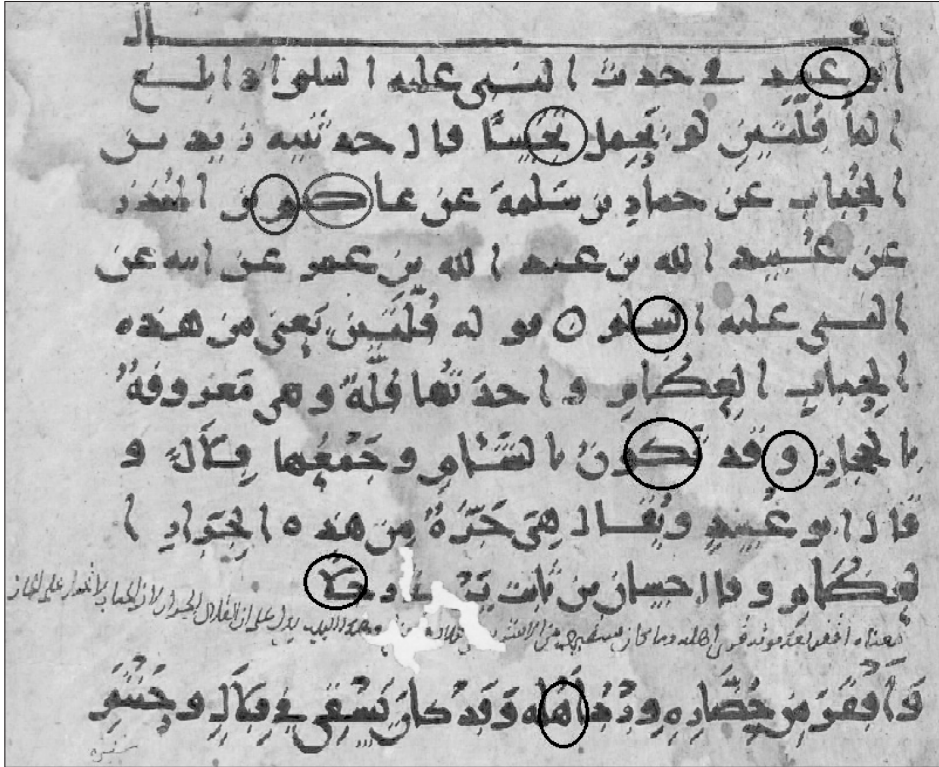 قال
ابو عبيد في حديث النبي عليه السلم اذا بلغ
الما قُلَّتَينِ لم يَحمِل نَجَسًا قال حدثنيه زيد بن
الحُباب عن حمادِ بن سَلمةَ عن عاصم بن المنذر
عن عُبيد الله بن عبد الله بن عمر عن ابيه عن
النبي عليه السلم ه قوله قُلَّتَينِ يَعني من هذه
الحِبابِ العِظامِ واحدتها قُلّةٌ وهي مَعروفةٌ
بالحجازِ وقد تَكونُ بالشَّامِ وجَمْعُها قِلَالٌ و
قال ابو عُبيدٍ ويُقال هي جَرَّةٌ مِن هذه الجِرَارِ ا
لعِظَامِ وقال حسان بن ثابت
معناه اقفر بعد
وَأَقْفَرَ مِن حُضَّارِهِ وِرْدُ أَهْلِهِ وَقَدْ كانَ يُسْقِي في قِلَالٍ وحَنْتَمِ